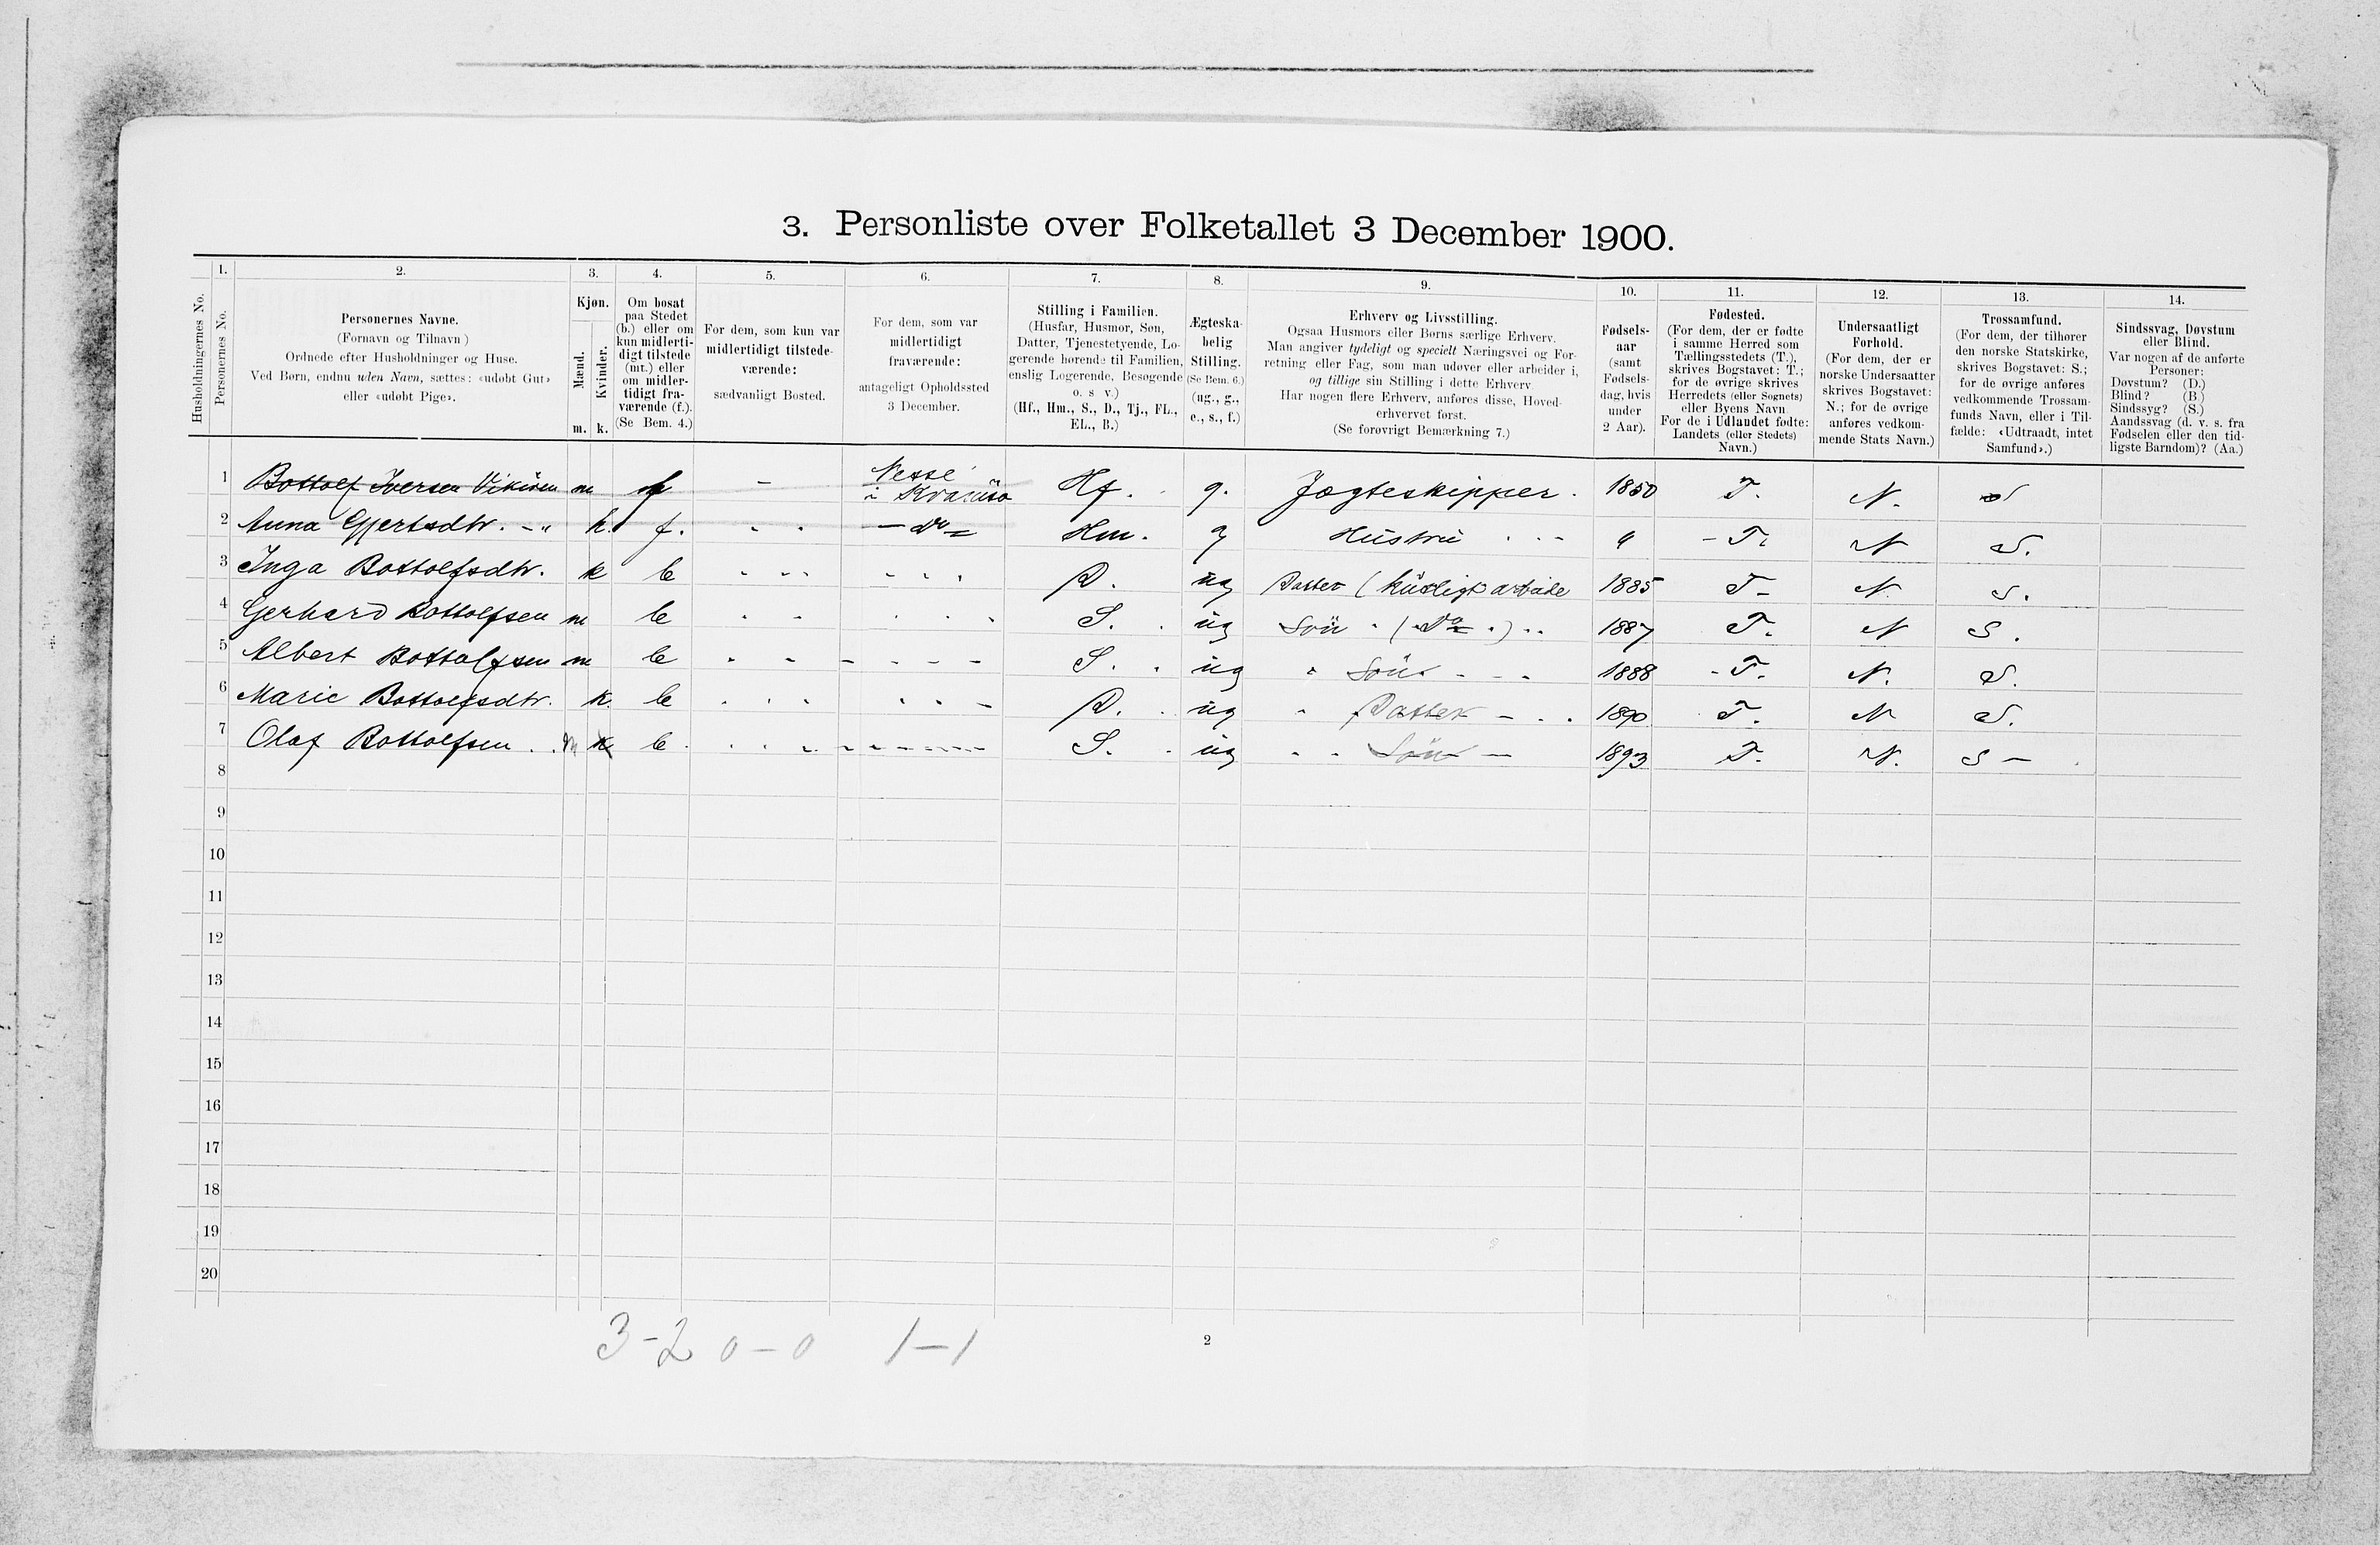 3. Personliste over Folketallet 3 December 1900.
1. 2. 3. 4. 5. 6. 7. 8. 9. 10. 11. 12. 13. 14.
Husholdningernes No.
Personernes No.
Personernes Navne.
(Fornavn og Tilnavn)
Ordnede efter Husholdninger og Huse.
Ved Børn, endnu uden Navn, sættes: «udøbt Gut»
eller «udøbt Pige».
Kjøn.
Mænd.
Kvinder.
m. k.
Om bosat
paa Stedet
(b.) eller om
kun midlerti-
digt tilstede
(mt.) eller
om midler-
tidigt fra-
værende (f.).
(Se Bem. 4.)
For dem, som kun var
midlertidigt tilstede-
værende:
sædvanligt Bosted.
For dem, som var
midlertidigt
fraværende:
antageligt Opholdssted
3 December.
Stilling i Familien.
(Husfar, Husmor, Søn,
Datter, Tjenestetyende, Lo-
gerende hørende til Familien,
enslig Logerende, Besøgende
o. s v.)
(Hf., Hm., S., D., Tj., FL.,
EL., B.)
Ægteska-
belig
Stilling.
(Se Bem. 6.)
(ug., g.,
e., s., f.)
Erhverv og Livsstilling.
Ogsaa Husmors eller Børns særlige Erhverv.
Man angiver tydeligt og specielt Næringsvei og For-
retning eller Fag, som man udøver eller arbeider i,
og tillige sin Stilling i dette Erhverv.
Har nogen flere Erhverv, anføres disse, Hoved-
erhvervet først.
(Se forøvrigt Bemærkning 7.)
Fødsels-
aar
(samt
Fødsels-
dag, hvis
under
2 Aar).
Fødested.
(For dem, der er fødte
i samme Herred som
Tællingsstedets (T.),
skrives Bogstavet: T.;
for de øvrige skrives
Herredets (eller Sognets)
eller Byens Navn.
For de i Udlandet fødte:
Landets (eller Stedets)
Navn.)
Undersaatligt
Forhold.
(For dem, der er
norske Undersaatter
skrives Bogstavet:
N.; for de øvrige
anføres vedkom-
mende Stats Navn.)
Trossamfund.
(For dem, der tilhører
den norske Statskirke,
skrives Bogstavet: S.;
for de øvrige anføres
vedkommende Trossam-
funds Navn, eller i Til-
fælde: «Udtraadt, intet
Samfund».)
Sindssvag, Døvstum
eller Blind.
Var nogen af de anførte
Personer:
Døvstum? (D.)
Blind? (B.)
Sindssyg? (S.)
Aandssvag (d. v. s. fra
Fødselen eller den tid-
ligste Barndom)? (Aa.)
1 Bottolf Iversen m f - Nesse i Hf. g. Jægteskipper. 1850 T. N. S
2 Anna Gjertsdtr. - " k. f. - do - Hm. g Hüstrü " - T. N S.
3 Inga Bottolfsdtr. k b D. üg Datter (hüsligt arbeide 1885 T- N S.
4 Gerhard Bottolfsen m b S. üg Sön (do) 1887 T. N S.
5 Albert Bottolfsen m b S. üg Sön 1888 - T. N. S.
6 Marie Bottolfsdtr. k. b D. üg Datter - 1890 T. N S.
7 Olaf Bottolfsen m k b S. üg Sön - 1893 T. N. S -
8
9
10
11
12
13
14
15
16
17
18
19
20
3-2 0-0 1-1
2